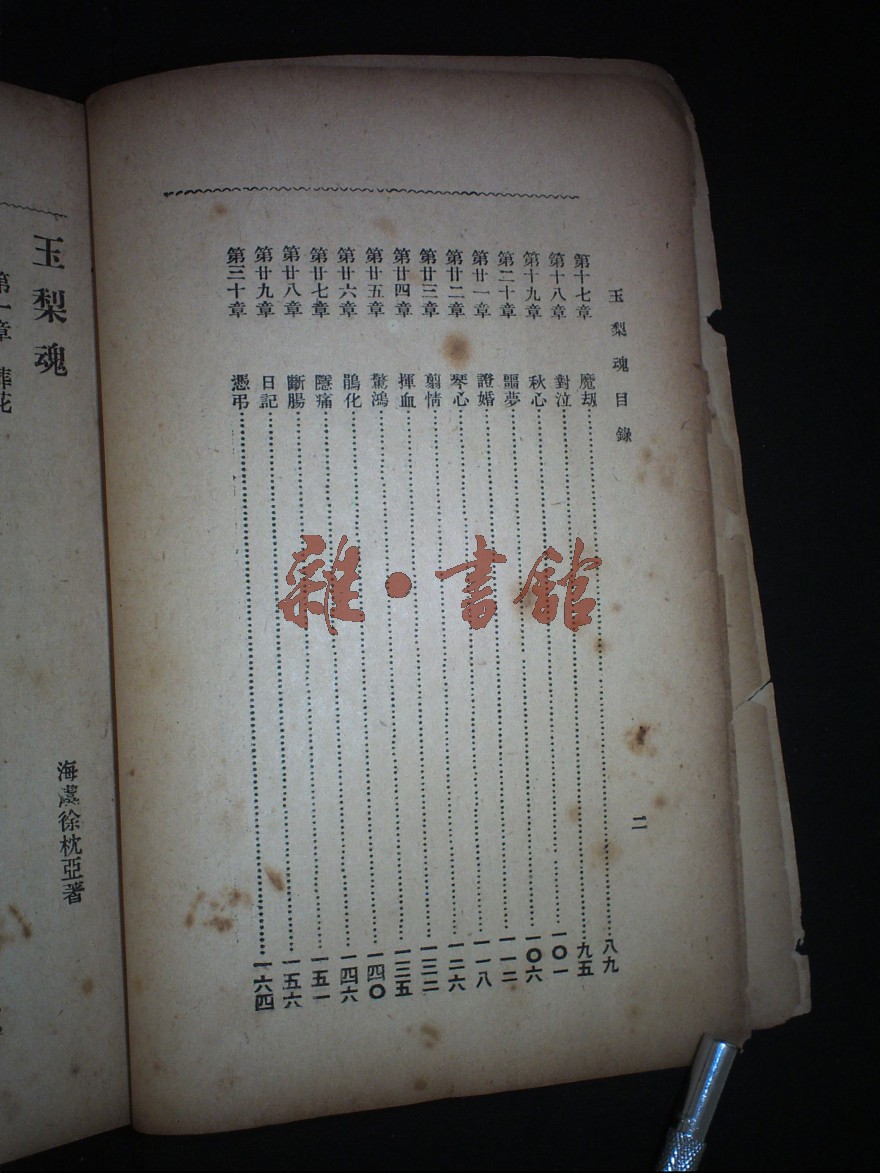 玉梨魂目錄
二
第十七章 魔刼……八九
第十八章 對泣……九五
第十九章 秋心……一〇一
第二十章 噩夢……一〇六
第廿一章 證婚……一一二
第廿二章 琴心……一一八
第廿三章 翦情……一二六
第廿四章 揮血……一三二
第廿五章 驚鴻……一三五
第廿六章 鵑化……一四〇
第廿七章 隱痛……一四六
第廿八章 斷腸……一五一
第廿九章 日記……一五六
第三十章 憑弔……一六四
玉梨魂
海虞徐枕亞著
第一章 葬花
雜·書館